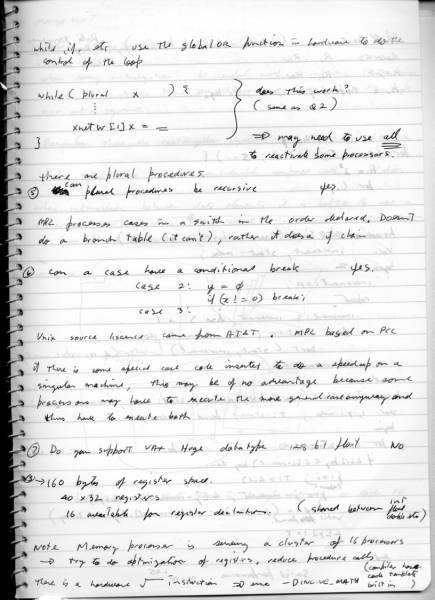 while, if, etc use the globalOR function in hardware to do the
control of the loop
while ( plural x ) { does this work?
⋮ ( same as Q2 )
xnetW[1]x = = ⇒ may need to use all
} to reactivate some processors.
there are plural procedures
⑤ can plural procedures be recursive yes.
MPL processes cases in a switch in the order declared, Doesn't
do a branch table (it can't), rather it does a if chain
⑥ can a case have a conditional break - yes.
case 2: y = ϕ
if (x != 0) break;
case 3:
Unix source licence came from AT&T. MPL based on PCC
if there is some special case code inserted to do a speedup on a
singular machine, this may be of no advantage because some
processors may have to execute the more general case anyway and
thus have to execute both
⑦ Do you support VAX Huge datatype 128 bit float NO
⑧ → 160 bytes of register space.
40 x 32 registers
16 available for register declarations. ( shared between int float double etc )
Note Memory processor is serving a cluster of 16 processors
→ try to do optimization of registers, reduce procedure calls
There is a hardware √ instruction ⇒ use -DINLINE_MATH (compiler have code template built in )